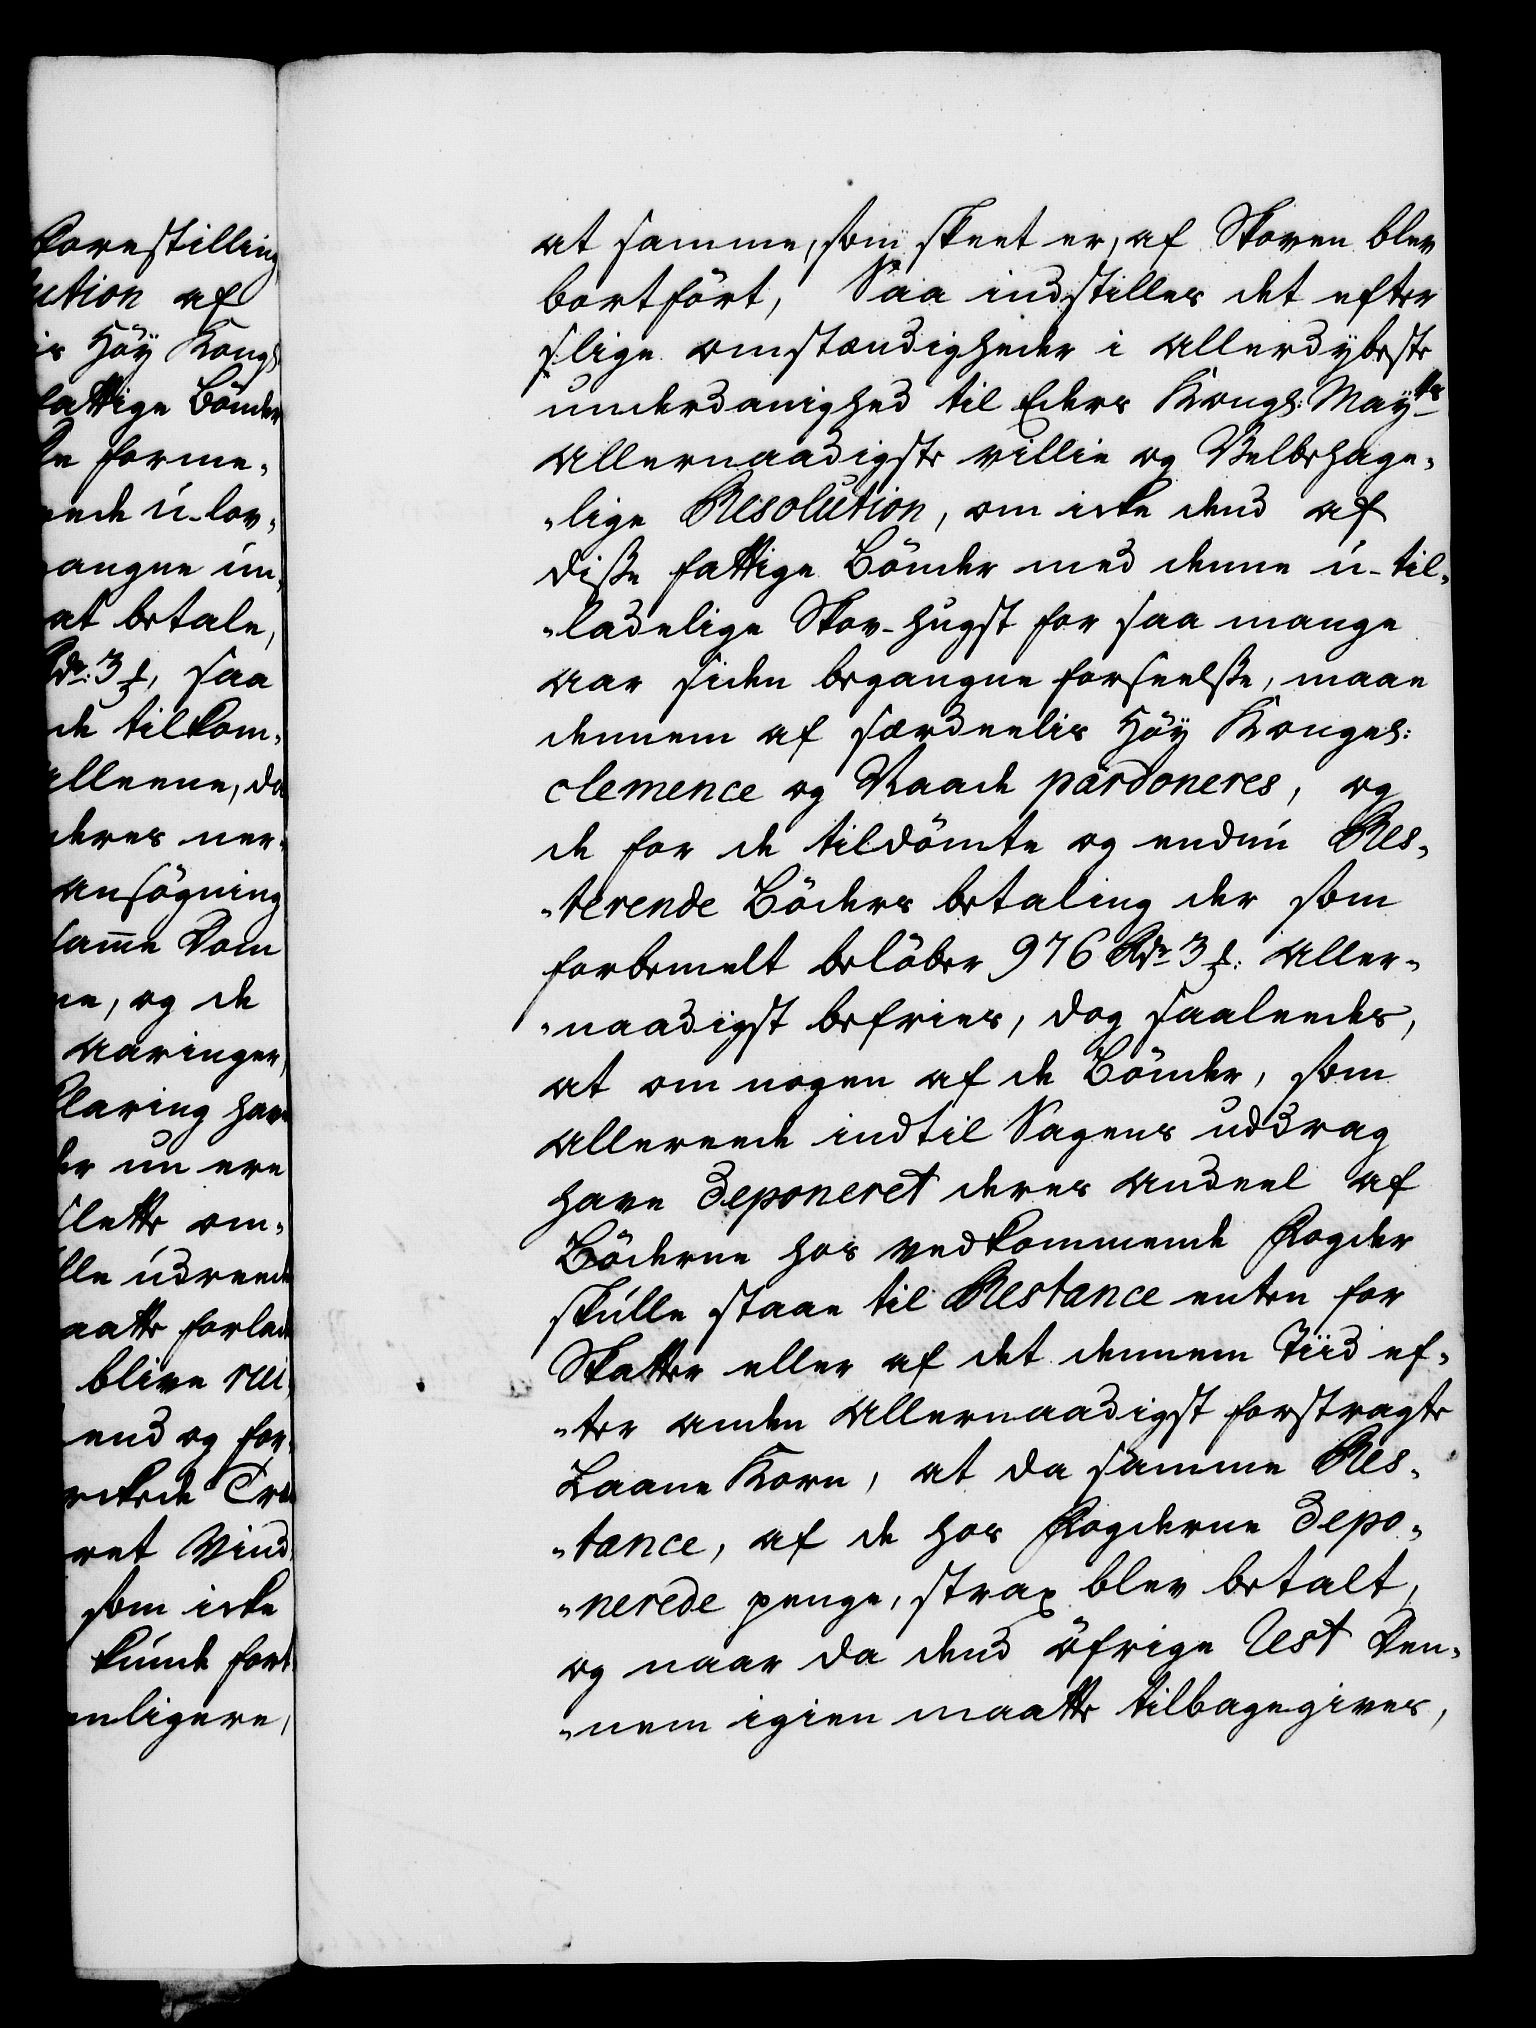 Forestilling
ution af
is Høy Kongl
fattige Bönder
forme-
ende ú-lov-
gangne
at betale,
Rdr: 3 ß, saa
de tilkom-
alleene, da
deres
ansögning
sam̅e Dom
ne, og de
Aaringer,
klaring have
er nu ere
slette om-
lle údreede
maatte forlade
blive rui-
end og for-
ret Vind
som icke
kúnde fort
nligere,
at samme, som skeet er, af Skoven blev
bortfört, Saa indstilles det efter
slige omstændigheder i allerdybeste
underdanighed til Eders Kongl: Mayts
allernaadigste villie og Velbehage-
-lige Resolution, om icke dend af
disse fattige Bönder med denne ú-til-
-ladelige Skov-húgst for saa mange
aar siden begangne forseelsse, maae
dennem af særdeelis Höy Konges:
clemence og Naade pardoneres, og
de for de tildömte og endnú Res-
-terende Böders betaling der som
forbemelt belöber 976 Rdr 3 ß: aller-
-naadigst befries, dog saaleedes,
at om nogen af de Bönder, som
allereede indtil Sagens uddrag
have deponeret deres andeel af
Böderne hos vedkommende Fogder
skúlle staae til Restance enten for
Skatter eller af det dennem Tiid ef-
-ter anden allernaadigst forstragte
Laane Korn, at da samme Res-
-tance, af de hos Fogderne depo-
-nerede penge, strax blev betalt,
og naar da dend öfrige Rest den-
-nem igien maatte tilbagegives,